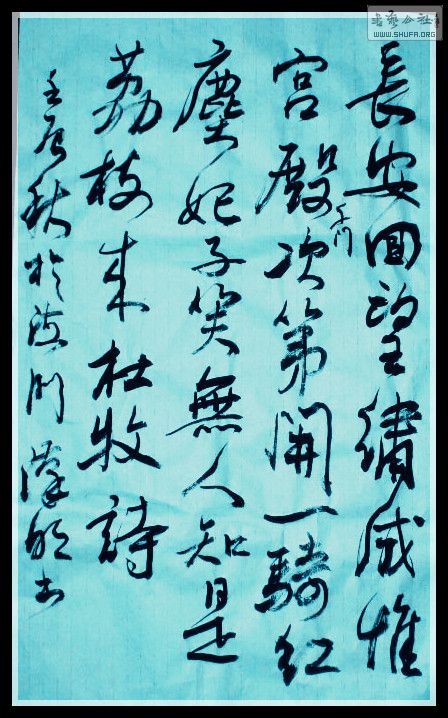 書藝公社
WWW.SHUFA.ORG
長安回望繡成堆
宮殿次第開一騎紅
千門
塵妃子笑無人知是
荔枝來杜牧詩
壬辰秋於門書